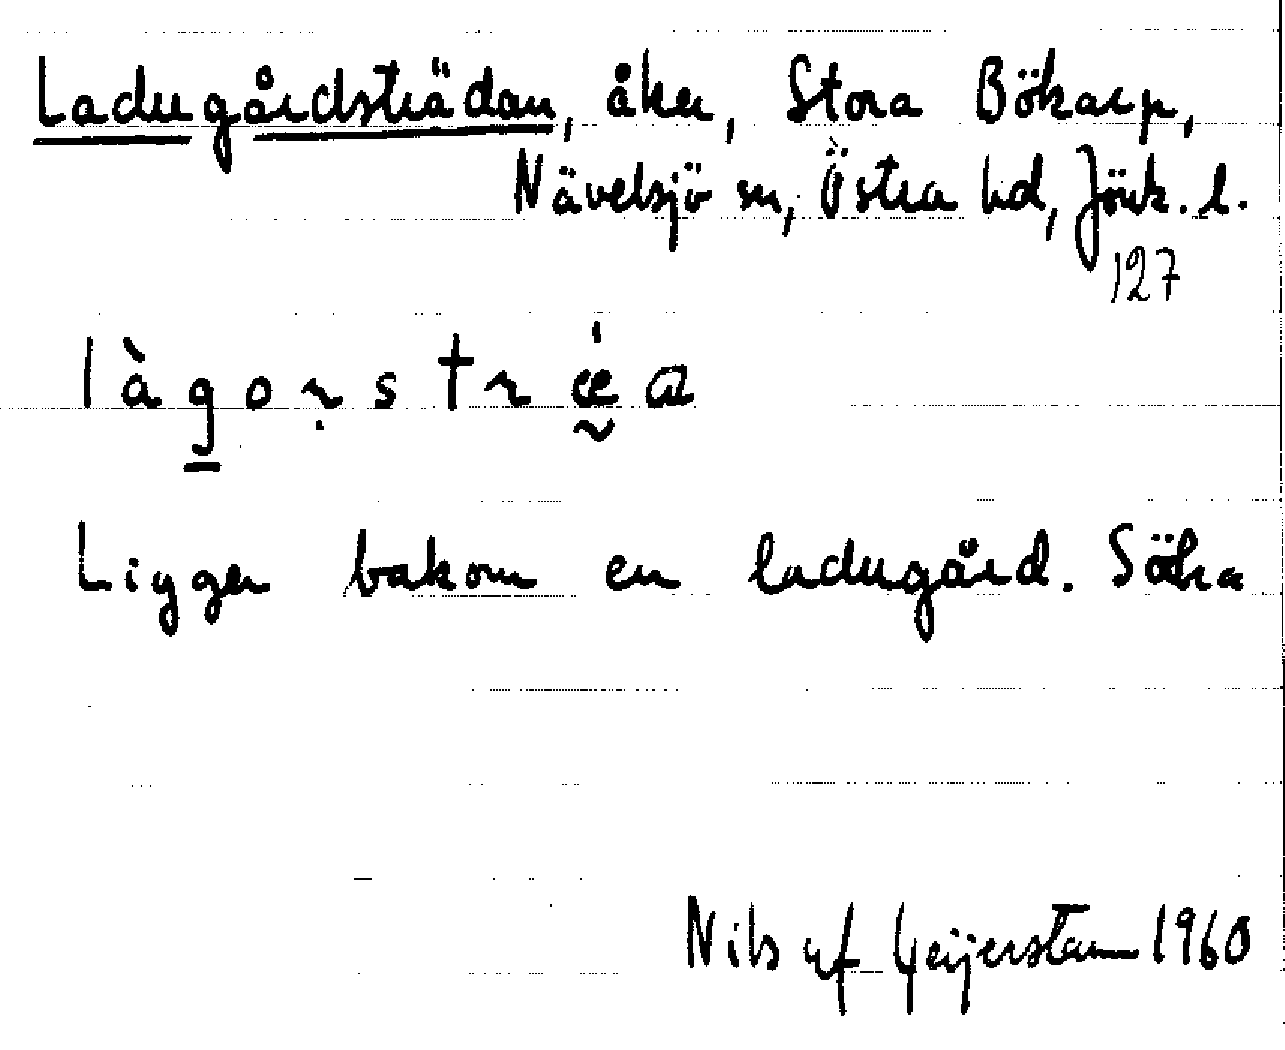 Ladugårdsträdan, åker, Stora Bökarp,
Nävelsjö sn, Östra hd, Jönk. l.
127
làgorstræ̀a
Ligger bakom en ladugård. Söka
Nils af Geijerstam 1960